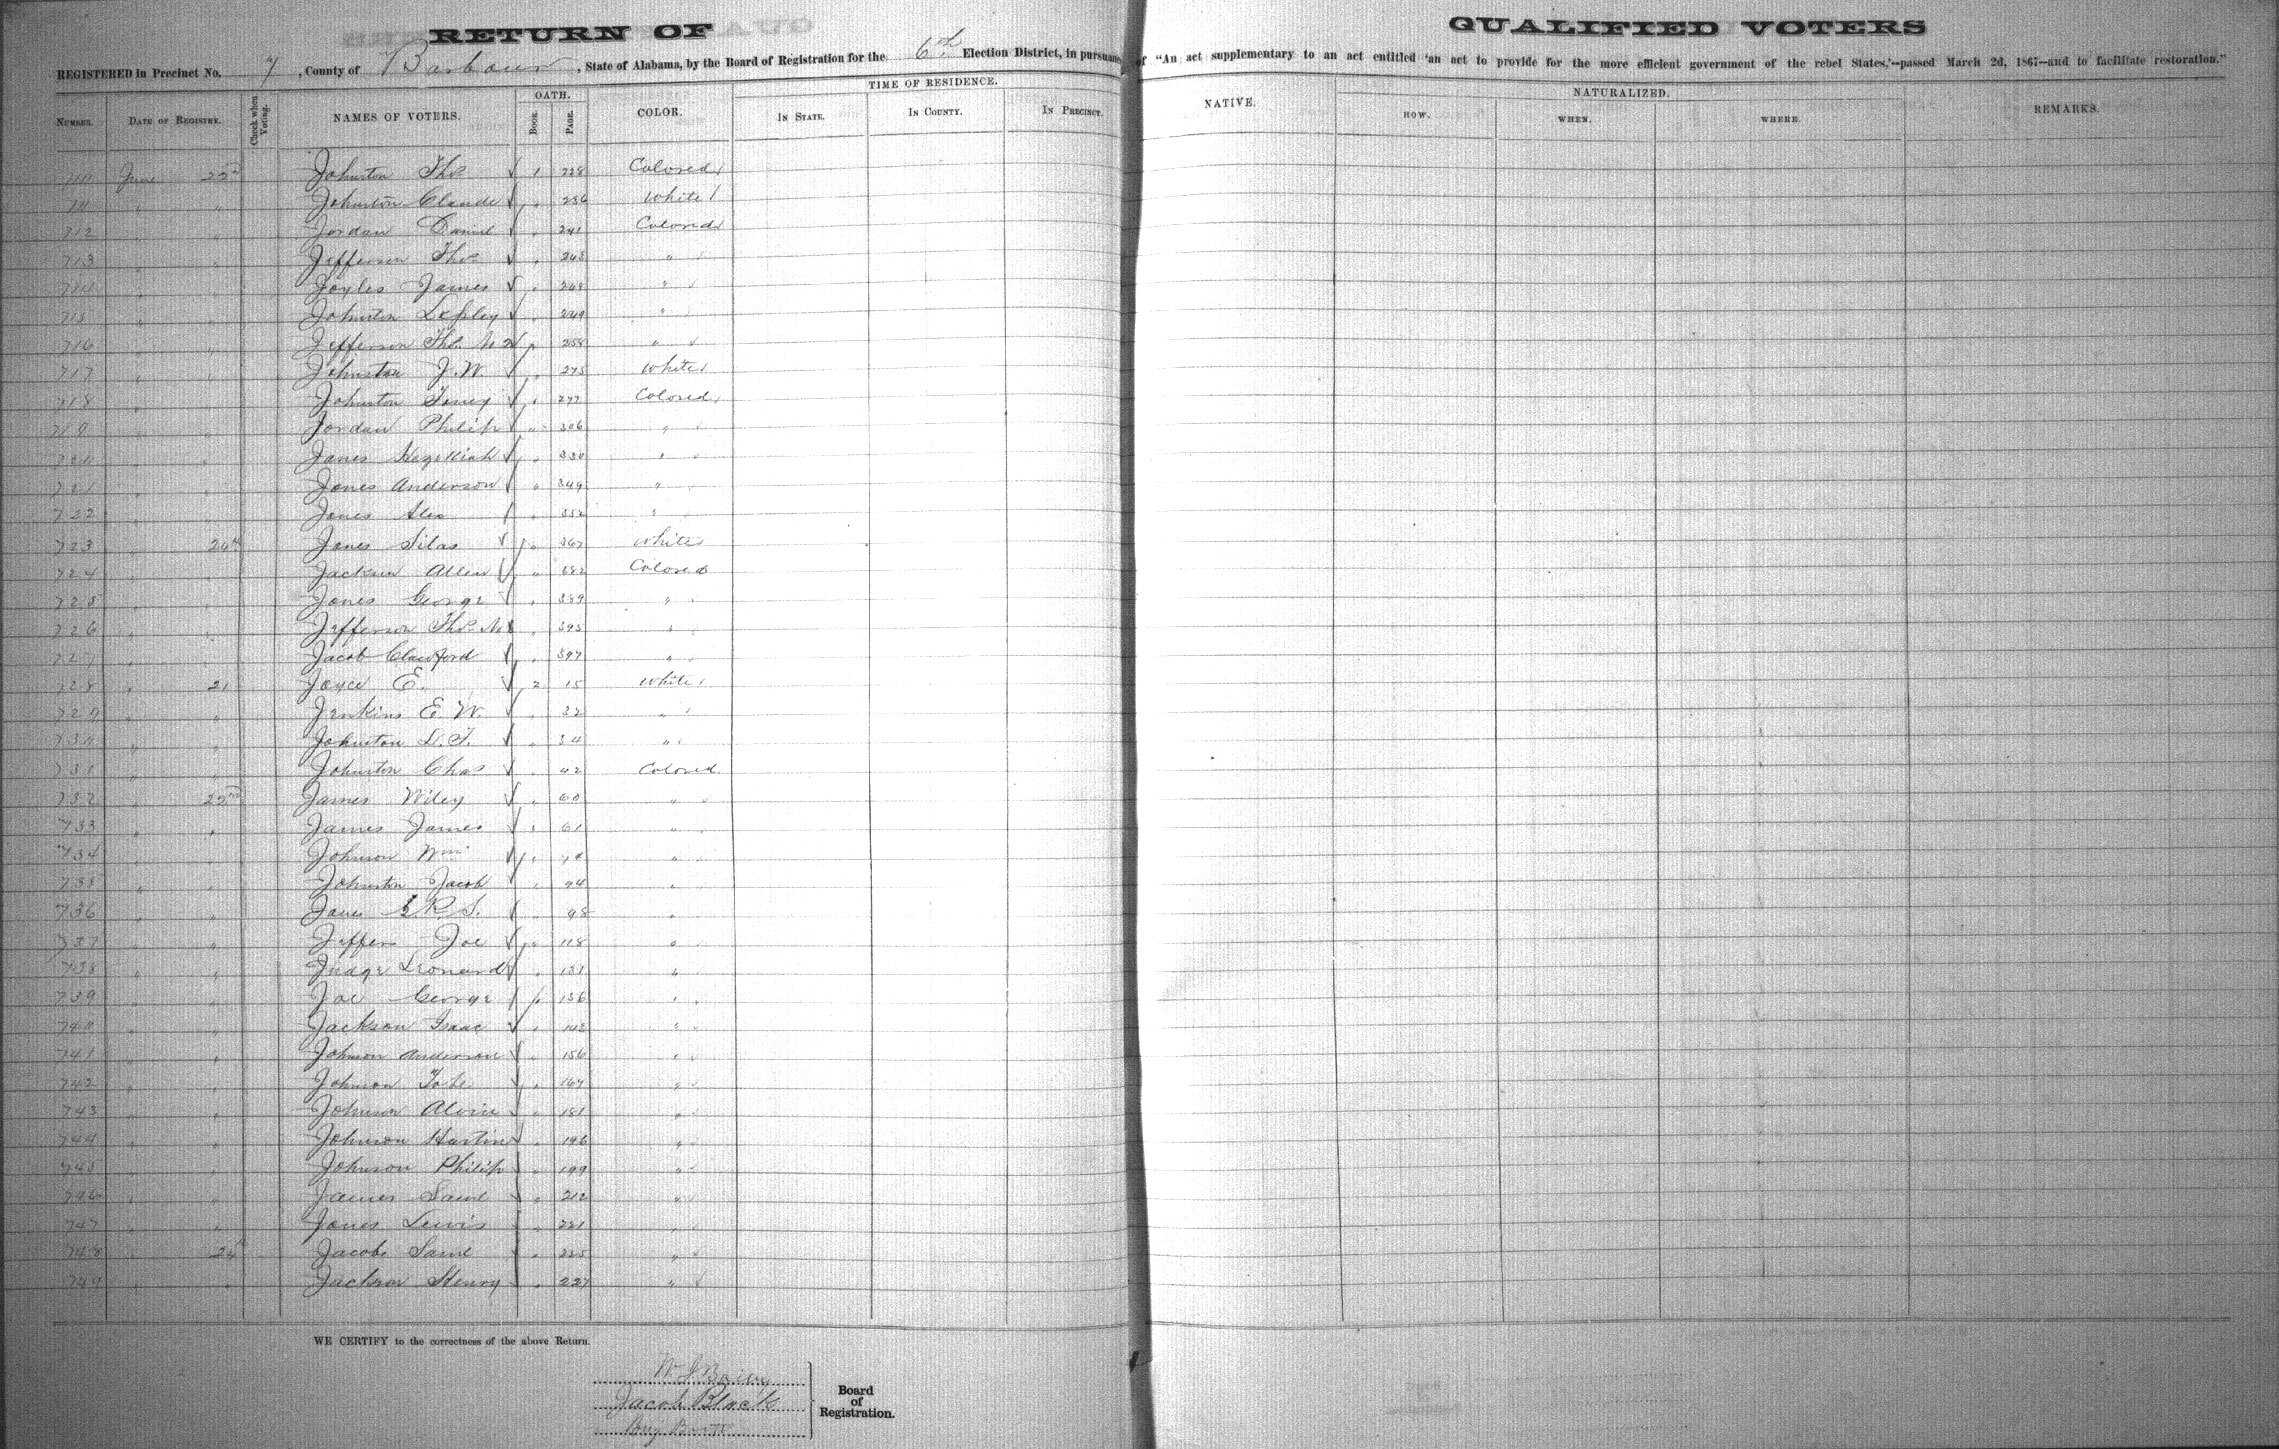 RETURN OF QUALIFIED VOTERS
REGISTERED in Precinct No. 7, County of Barbour, State of Alabama, by the Board of Registration for the 6th Election District, in pursuance of "An act supplementary to an act entitled 'an act to provide for the more efficient government of the rebel States,'--passed March 2d, 1867--and to facilitate restoration."
NUMBER. DATE OF REGISTRY. Check when Voting. NAMES OF VOTERS. OATH. Book. PAGE. COLOR. TIME OF RESIDENCE. IN STATE. IN COUNTY. IN PRECINCT. NATIVE. NATURALIZED. HOW. WHEN. WHERE. REMARKS.
710 June 22d Johnston Thos 1 228 Colored
711 " " Johnston Claude " 236 White
712 " " Jordan Daniel " 241 Colored
713 " " Jefferson Thos " 248 "
714 " " Joyles James " 248 "
715 " " Johnston Lepley " 249 "
716 " " Jefferson Thos. No 2 " 258 "
717 " " Johnston J. W. " 275 White
718 " " Johnston Toney " 277 Colored
719 " " Jordan Philip " 306 "
720 " " Jones Hezekiah " 330 "
721 " " Jones Anderson " 349 "
722 " " Jones Alex " 352 "
723 " 24th Jones Silas " 367 White
724 " " Jackson Allen " 382 Colored
725 " " Jones George " 389 "
726 " " Jefferson Thos. " 393 "
727 " " Jacob Clawford " 397 "
728 " 21 Joyce E. 2 15 White
729 " " Jenkins E. W. " 32 "
730 " " Johnston D. T. " 34 "
731 " " Johnston Chas " 42 Colored
732 " 22nd James Wiley " 60 "
733 " " James James " 61 "
734 " " Johnson Wm " "
735 " " Johnston Jacob " 94 "
736 " " Jones R. S. 98 "
737 " " Joe " 118 "
738 " " Judge Leonard " 131 "
739 " " Joe George " 136 "
740 " " Jackson Isaac " 142 "
741 " " Johnson Anderson " 156 "
742 " " Johnson Tobe " 167 "
743 " " Johnson Alvin " 181 "
744 " " Johnson " 196 "
745 " " Johnson Philip " 199 "
746 " " James Saml " 212 "
747 " " Jones Lewis " 221 "
748 " 24 Jacobs Saml " 225 "
749 " " Jackson Henry " 227 "
WE CERTIFY to the correctness of the above Return.
Jacob Black
Board of Registration.